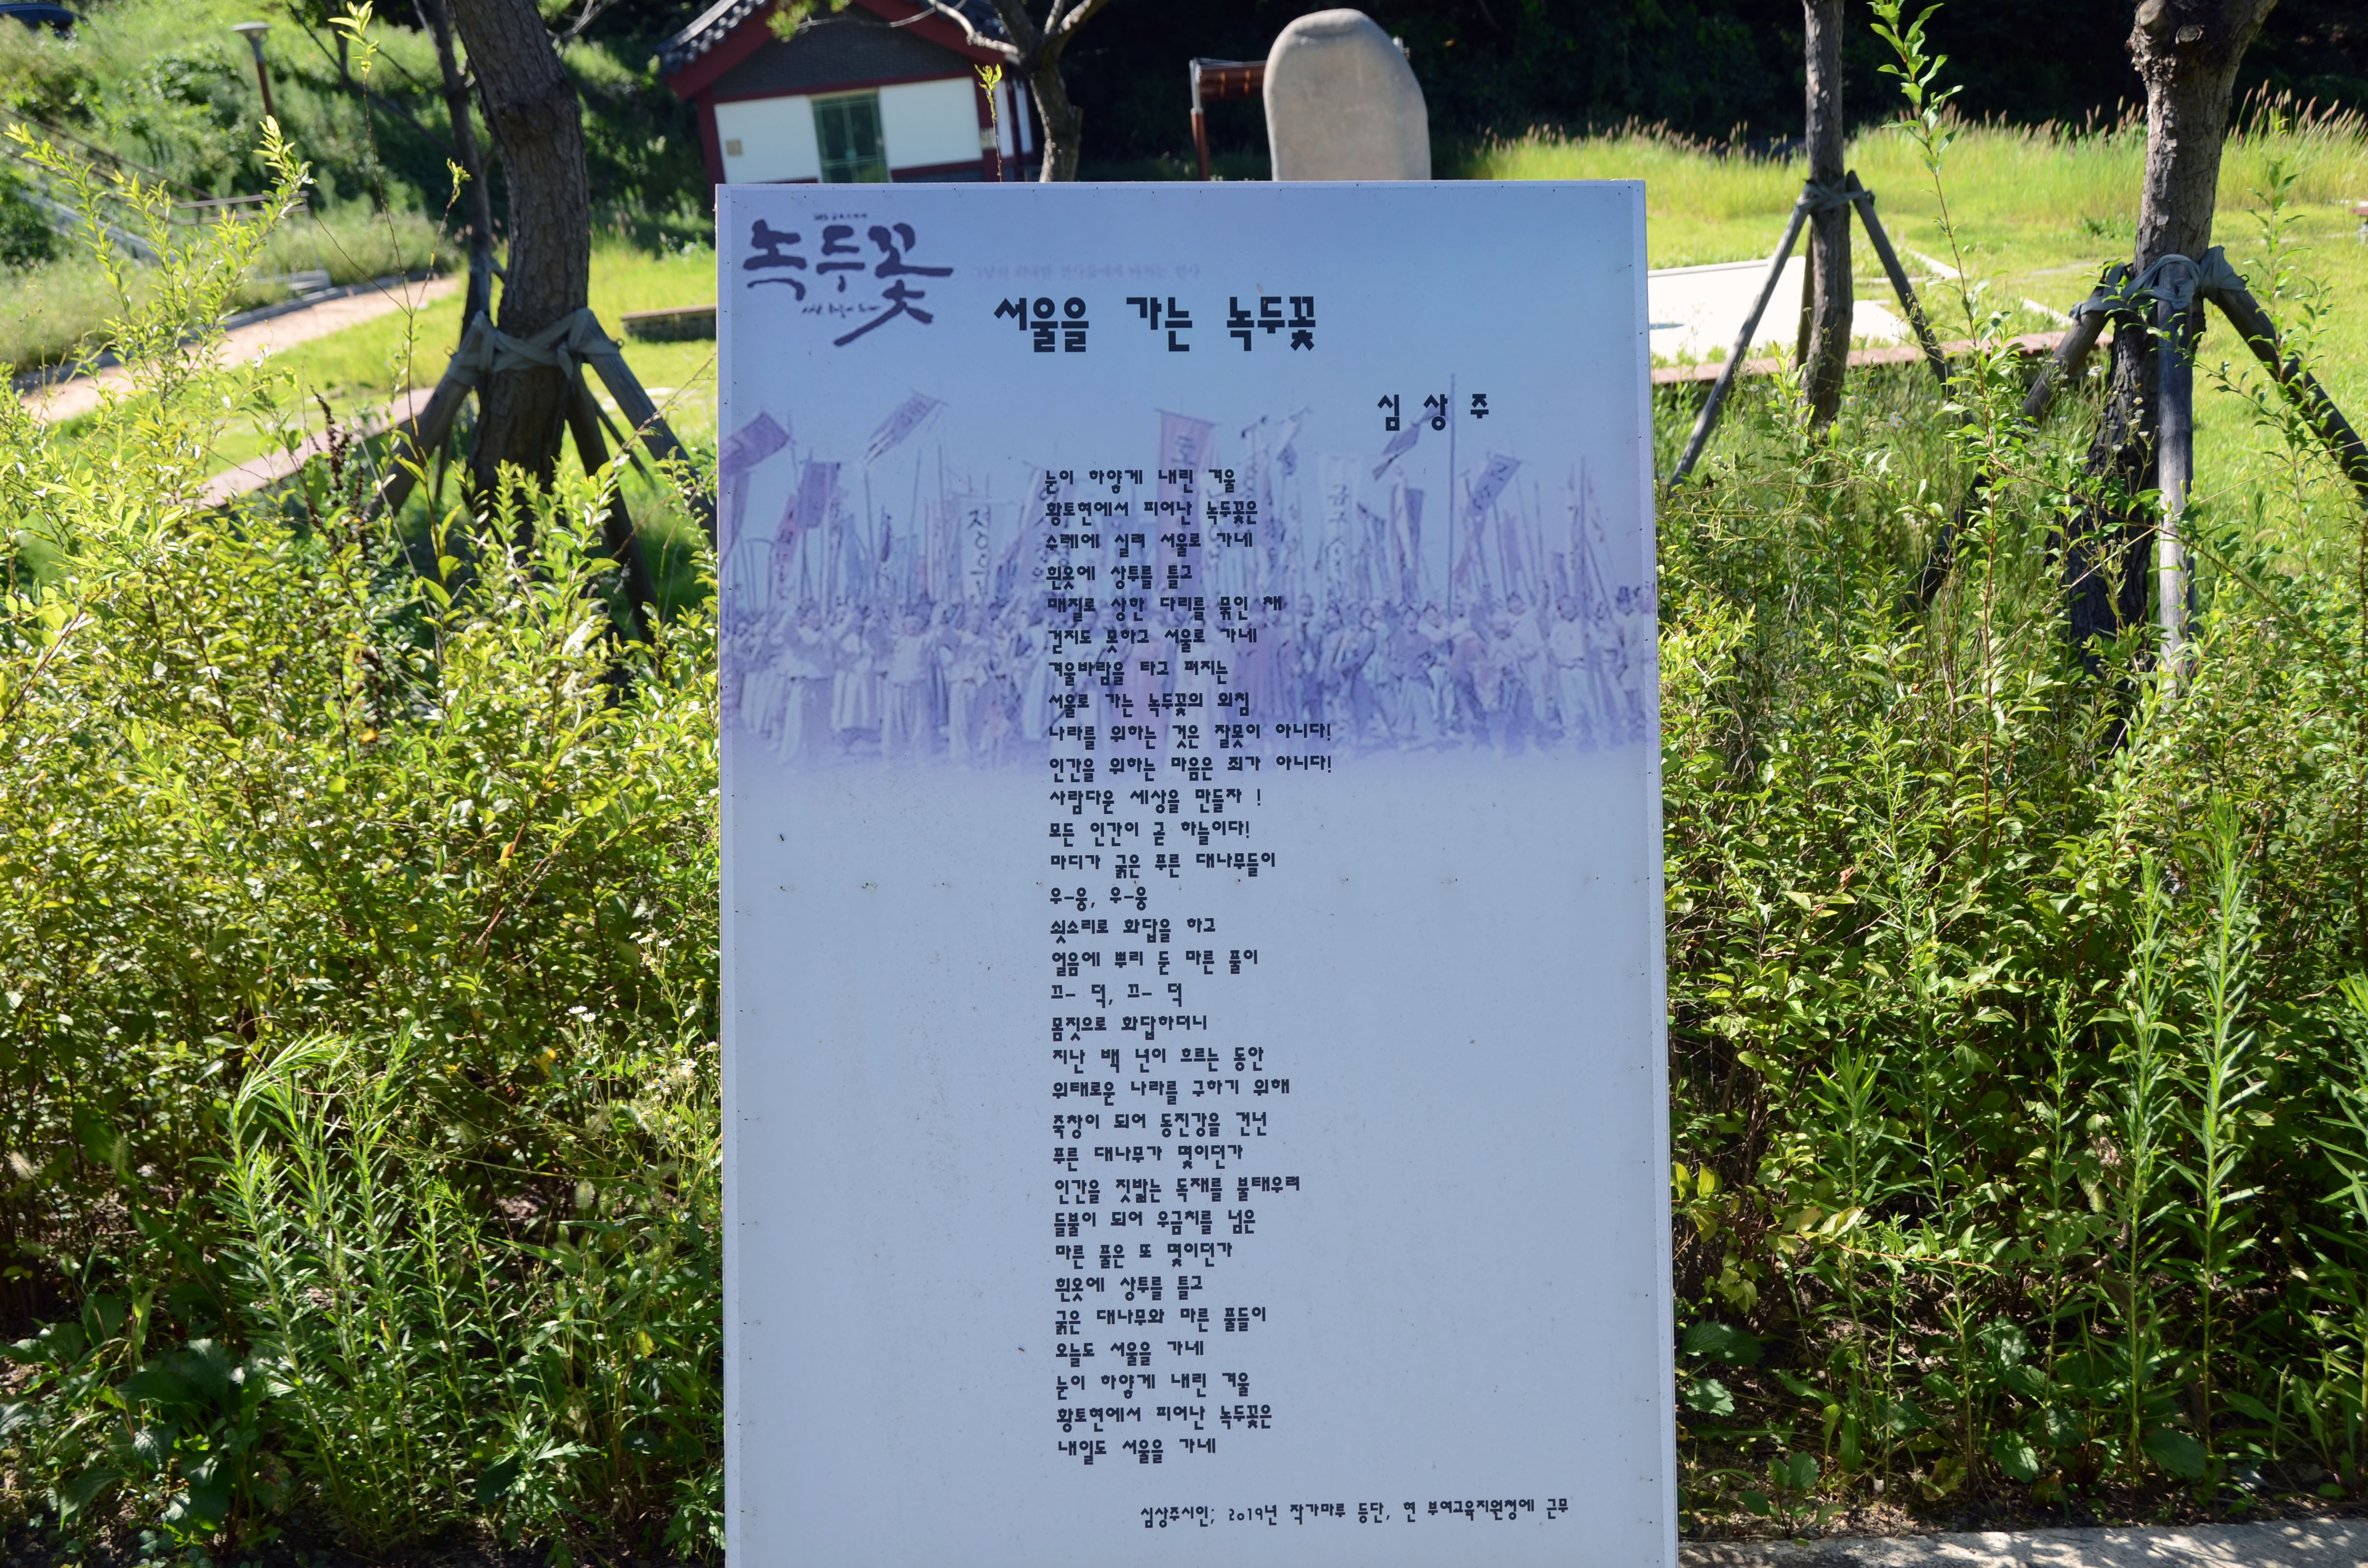 녹두꽃
서울을 가는 녹두꽃
심상주
눈이 하얗게 내린 겨울
황토현에서 피어난 녹두꽃은
수레에 실려 서울로 가네
흰옷에 상투를 틀고
매질로 상한 다리를 묶인 채
걷지도 못하고 서울로 가네
겨울바람을 타고 퍼지는
서울로 가는 녹두꽃의 외침
나라를 위하는 것은 잘못이 아니다!
인간을 위하는 마음은 죄가 아니다!
사람다운 세상을 만들자 !
모든 인간이 곧 하늘이다!
마디가 굵은 푸른 대나무들이
우-웅, 우-웅
쇳소리로 화답을 하고
얼음에 뿌리 둔 마른 풀이
끄- 덕, 끄- 덕
몸짓으로 화답하더니
지난 백 년이 흐르는 동안
위태로운 나라를 구하기 위해
죽창이 되어 동진강을 건넌
푸른 대나무가 몇이던가
인간을 짓밟는 독재를 불태우려
들불이 되어 우금치를 넘은
마른 풀은 또 몇이던가
흰옷에 상투를 틀고
굵은 대나무와 마른 풀들이
오늘도 서울을 가네
눈이 하얗게 내린 겨울
황토현에서 피어난 녹두꽃은
내일도 서울을 가네
심상주시인; 2019년 작가마루 등단, 현 부여교육지원청에 근무